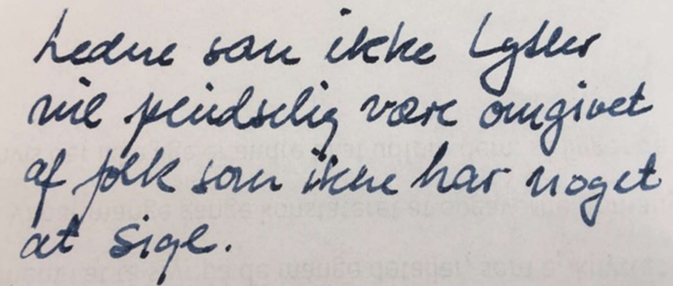 Ledere som ikke lytter
vil pludselig være omgivet
af folk som ikke har noget
at sige.